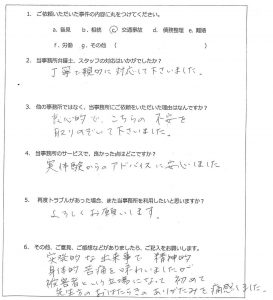 1. ご依頼いただいた事件の内容に丸をつけてください。
a. 離見 b. 相続 c. 交通事故 d. 債務整理 e. 離婚
f. 労働 g. その他 ( )
2. 当事務所弁護士、スタッフの対応はいかがでしたか?
丁寧で親切に対応して下さいました。
3. 他の事務所ではなく、当事務所にご依頼をいただいた理由はなんですか?
良心的で、こちらの不安を
取りのぞいて下さいました。
4. 当事務所のサービスで、良かった点はどこですか?
実体験からのアドバイスに安心しました
5. 再度トラブルがあった場合、また当事務所を利用したいと思いますか?
よろしくお願いします。
6. その他、ご意見、ご感想などがありましたら、ご記入をお願いします。
突発的な出来事で精神的
身体的苦痛を味わいましたが
被害者という立場になって初めて
先生方のおはたらきのありがたみを痛感しました。